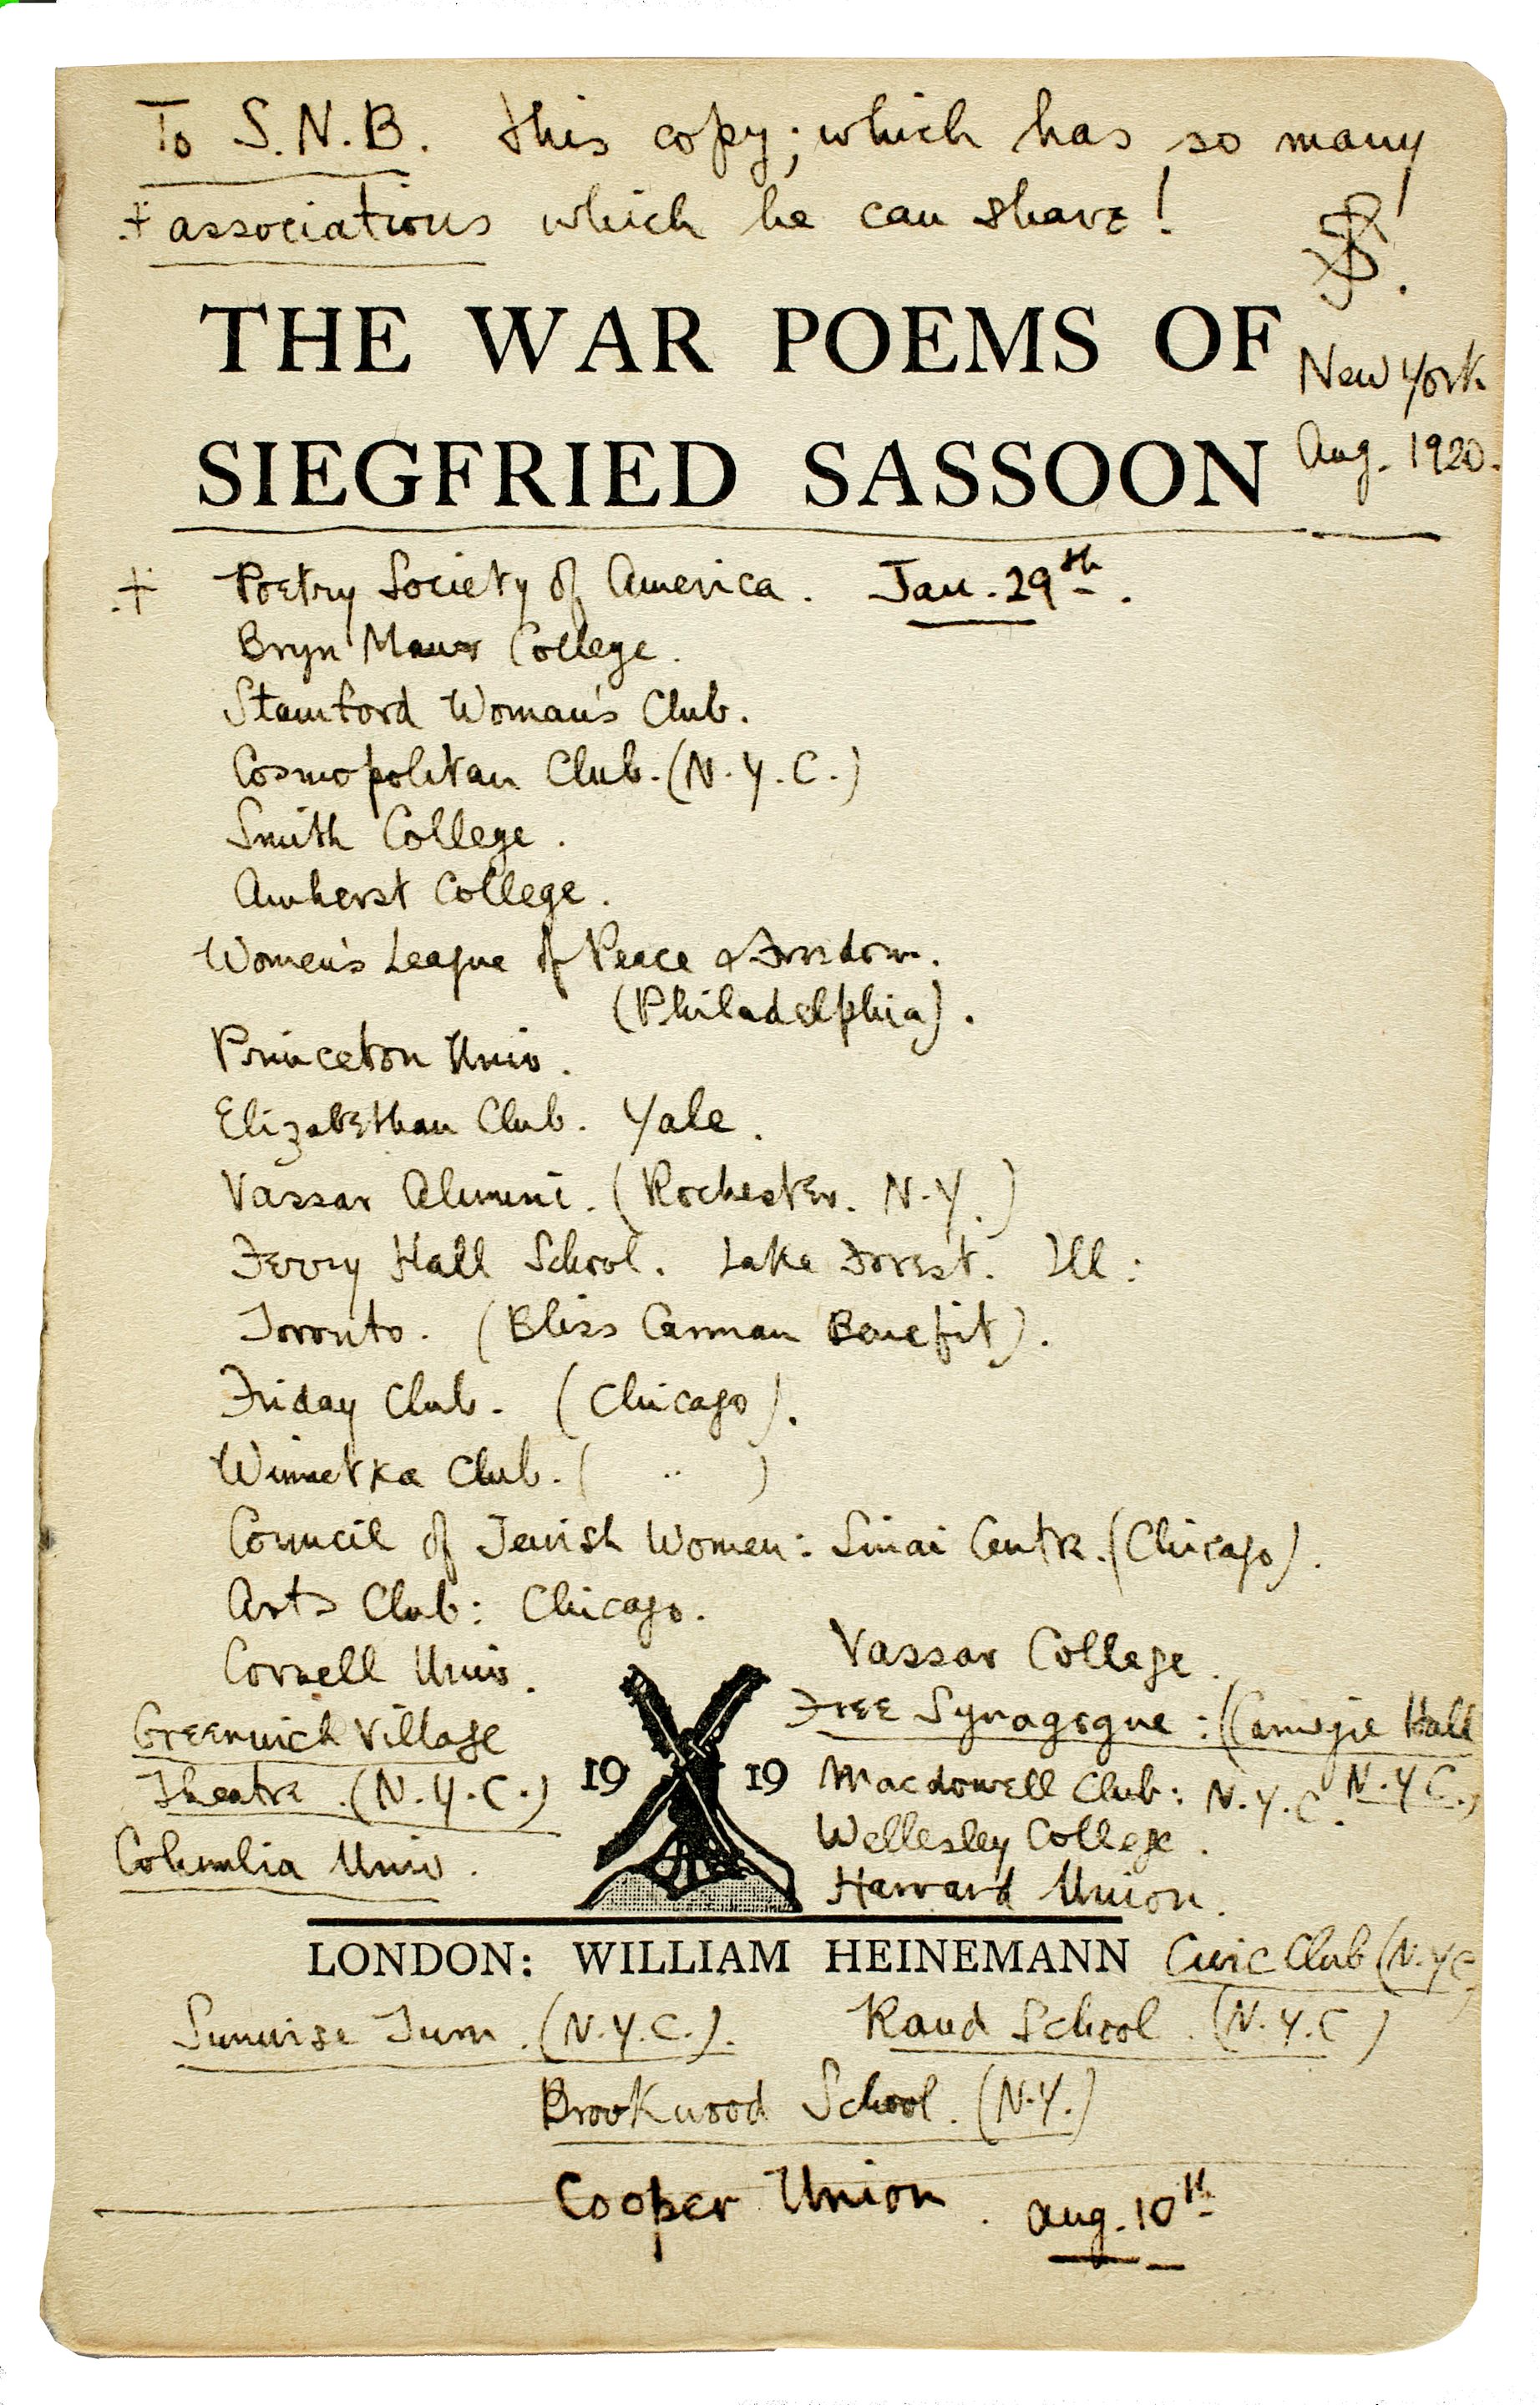 To S.N.B. this copy; which has so many
+ associations which he can share!
SS.
THE WAR POEMS OF
New York
SIEGFRIED SASSOON
Aug. 1920.
+ Poetry Society of America. Jan. 29th.
Bryn Mawr College.
Stamford Woman's Club.
Cosmopolitan Club. (N.Y.C.)
Smith College.
Amherst College.
Women's League of Peace & Freedom.
(Philadelphia).
Princeton Univ.
Elizabethan Club. Yale.
Vassar Alumni. (Rochester. N.Y.)
Ferry Hall School. Lake Forest. Ill:
Toronto. (Bliss Carman Benefit).
Friday Club. (Chicago).
Winnetka Club. ( " )
Council of Jewish Women: Sinai Centre. (Chicago).
Arts Club: Chicago.
Cornell Univ.
Greenwich Village
Theatre. (N.Y.C.)
Columbia Univ.
19 19
Vassar College.
Free Synagogue: (Carnegie Hall
N.Y.C.)
Macdowell Club: N.Y.C.
Wellesley College.
Harvard Union.
LONDON: WILLIAM HEINEMANN
Civic Club (N.Y.C.)
Sunwise Turn. (N.Y.C.).
Rand School. (N.Y.C)
Brookwood School. (N.Y.)
Cooper Union. Aug. 10th